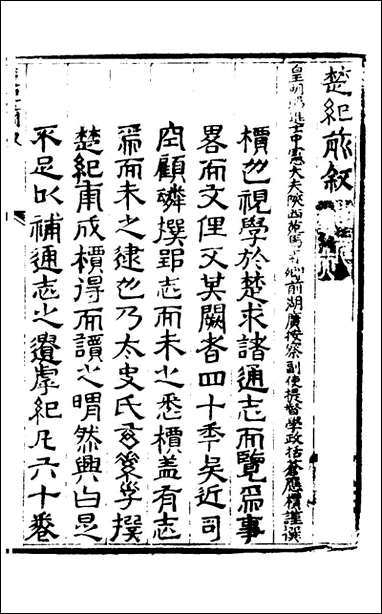 楚紀前叙
皇明賜進士中憲大夫陝西苑馬寺卿前湖廣按察副使提督學政括蒼應檟謹譔
檟也視學於楚求諸通志而覽焉事
畧而文俚又其闕者四十年矣近司
空顧璘撰郢志而未之悉檟盖有志
焉而未之逮也乃太史氏撰
楚紀甫成檟得而讀之喟然興曰是
不足以補通志之遺虖紀凡六十卷